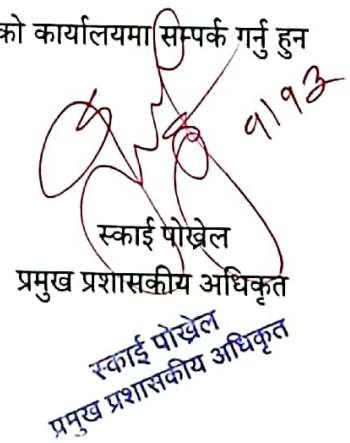 को कार्यालयमा सम्पर्क गर्नु हुन
९।१३
स्काई पोख्रेल
प्रमुख प्रशासकीय अधिकृत
स्काई पोख्रेल
प्रमुख प्रशासकीय अधिकृत